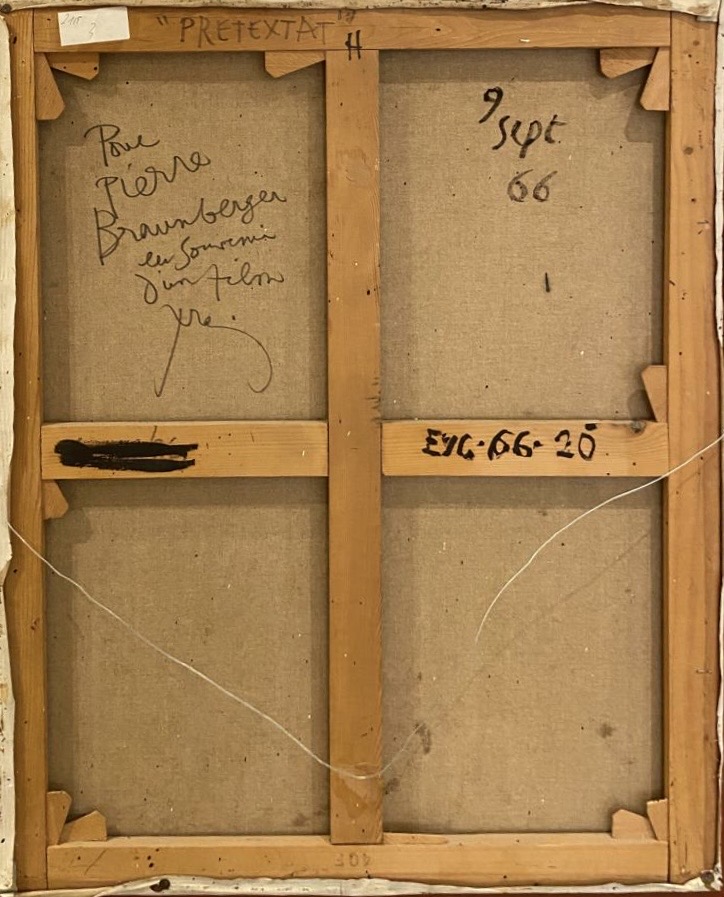 "PRETEXTAT"
H
Pour
Pierre
Braunberger
en souvenir
d'un film
9
Sept
66
EYC·66·20